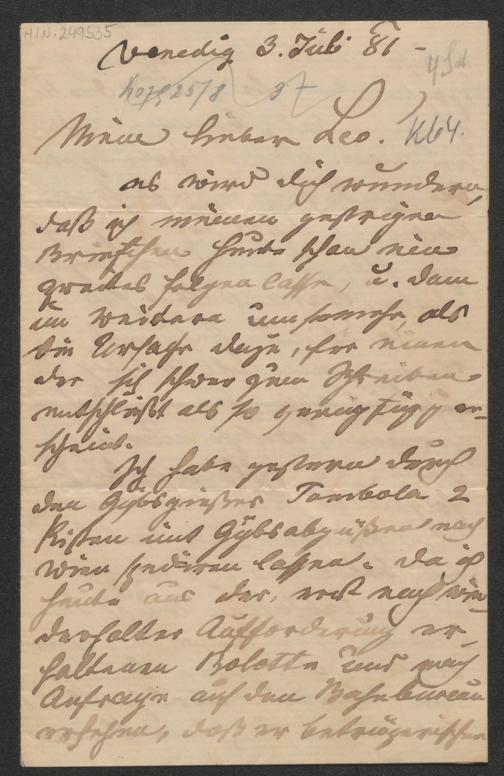 HIN-249535
Venedig 3. Juli 81 –
K64.
Mein lieber Leo.
es wird dich wundern,
daß ich meinem gestrigen
Briefchen heute schon ein
zweites folgen lasse, u. dem
im weitern umsomehr, als
die Ursache dazu, für einen
der sich schwer zum Schreiben
entschließt als so geringfügig er-
scheint.
Ich habe gestern durch
den Gÿbsgießer Tombola 2
Kisten mit Gÿbsabgüßen nach
Wien spediren lassen. Da ich
heute aus der, erst nach wie-
derholter Aufforderung er-
haltenen Bolette und nach
Anfrage auf den Bahnbureau
ersehen, daß er betrügerischer